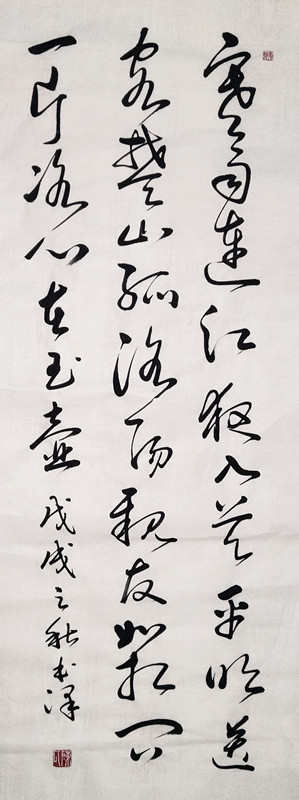 寒雨连江夜入吴平明送
客楚山孤洛阳亲友如相问
一片冰心在玉壶
戊戌之秋